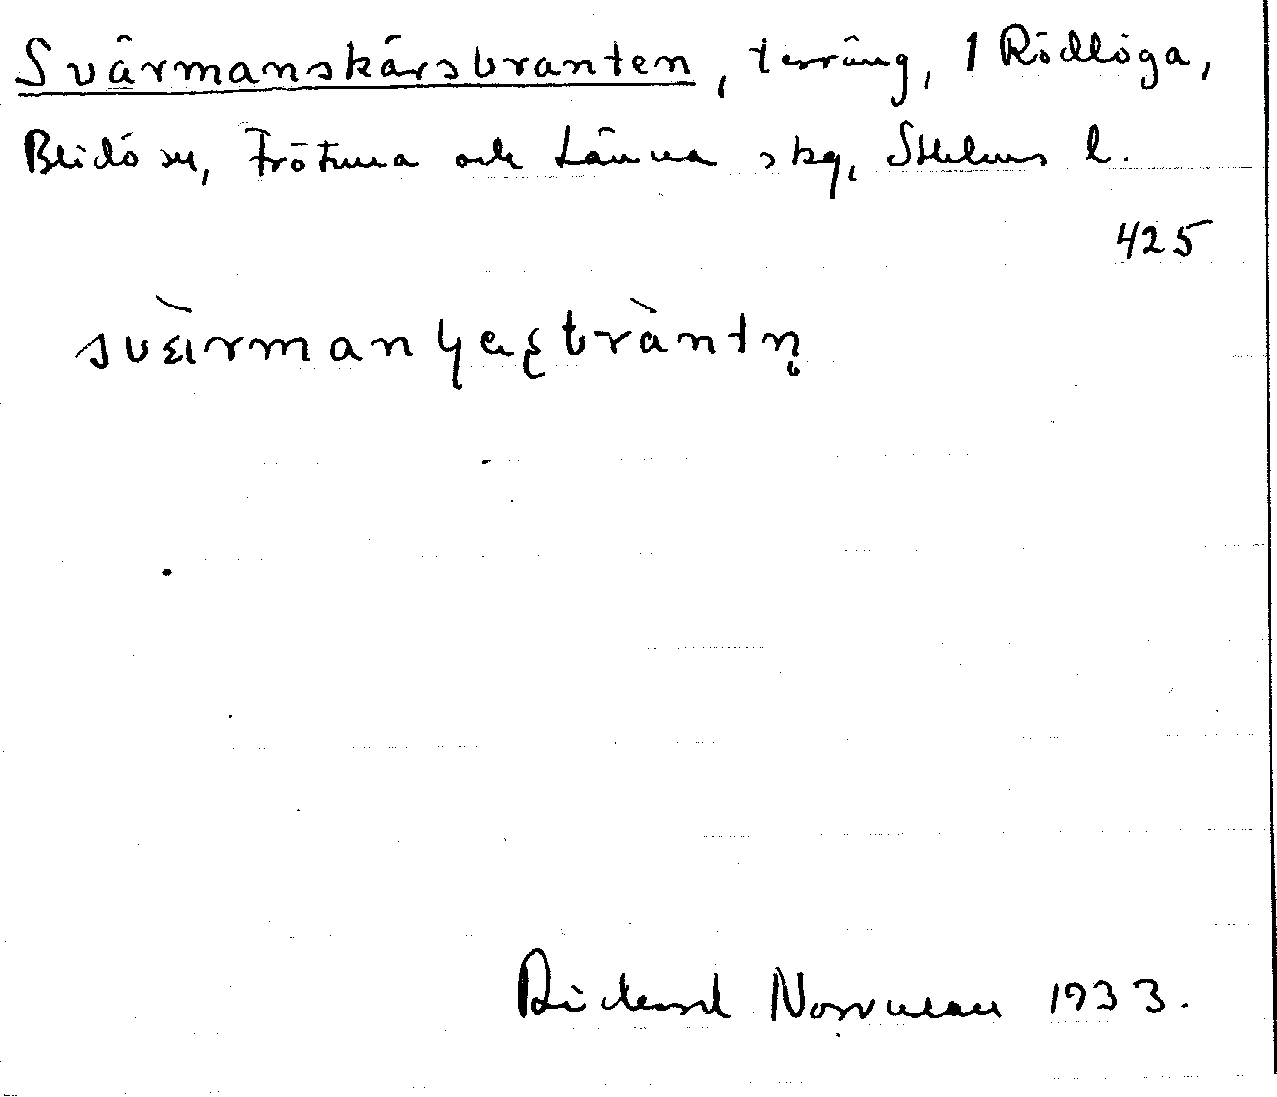 Svärmanskärsbranten, terräng, 1 Rödlöga,
Blidö sn, Frötuna och Länna skg, Sthlms l.
425
Rickard Norrman 1933.